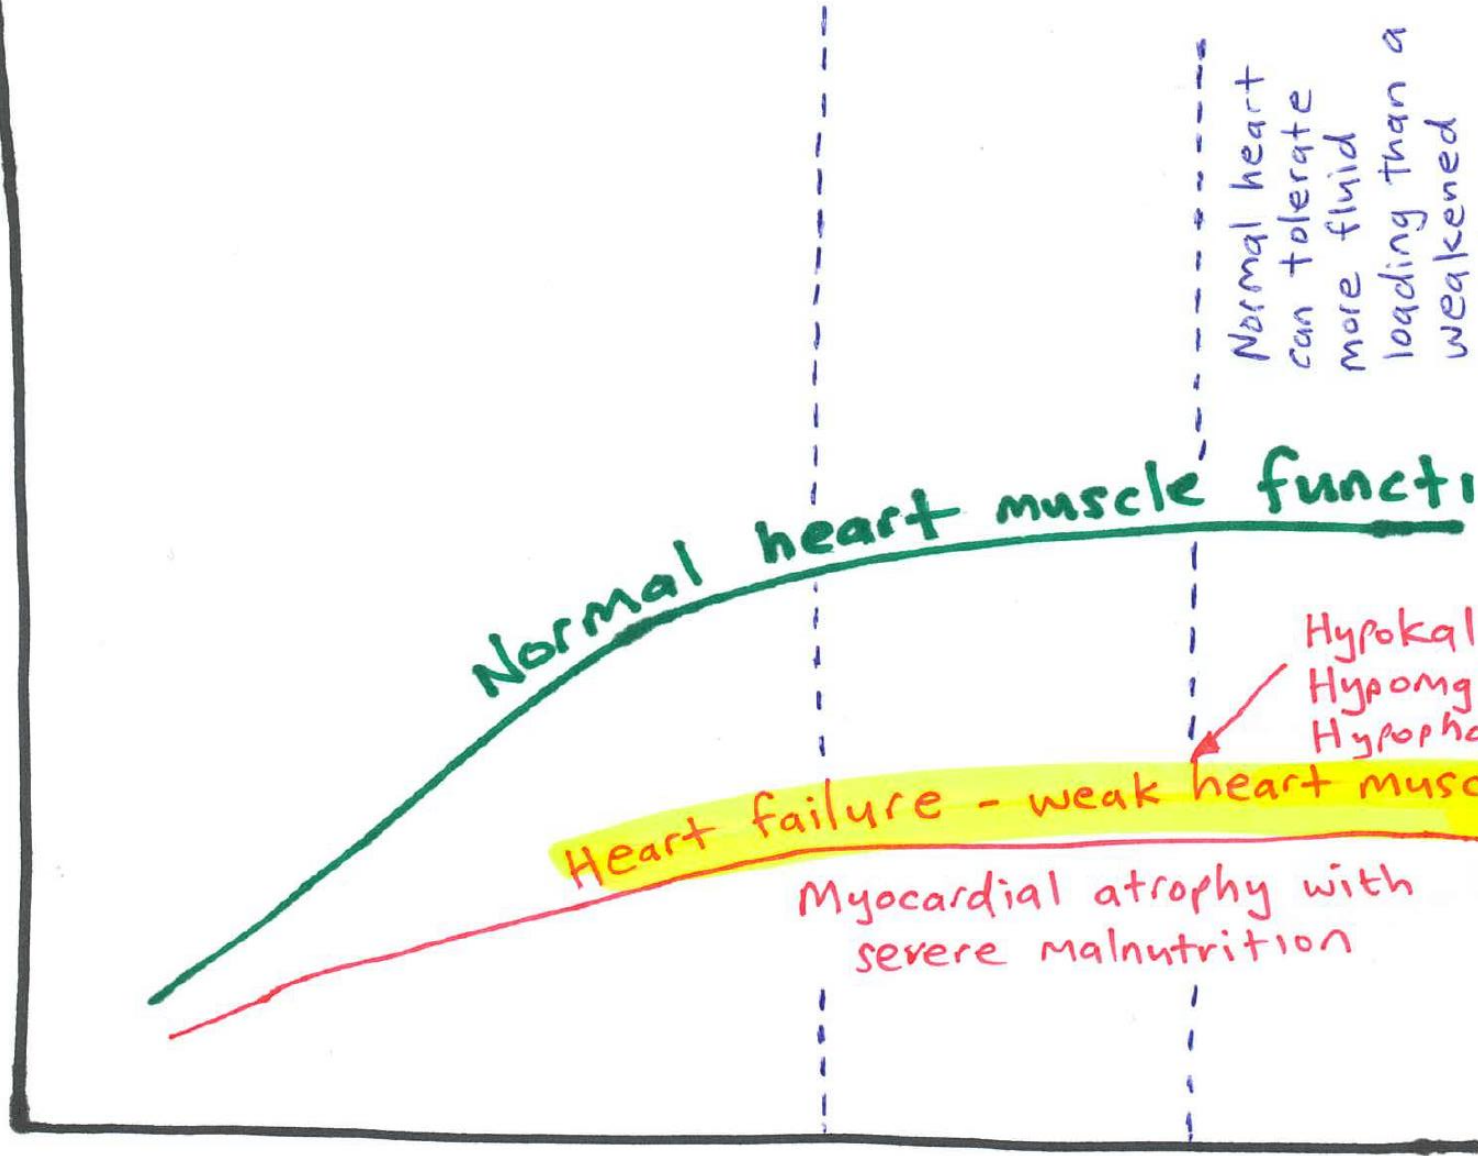 Normal heart
can tolerate
more fluid
loading than a
weakened
Normal heart muscle functi
Hypokal
Hypomg
Hypopho
Heart failure - weak heart musc
Myocardial atrophy with
severe malnutrition